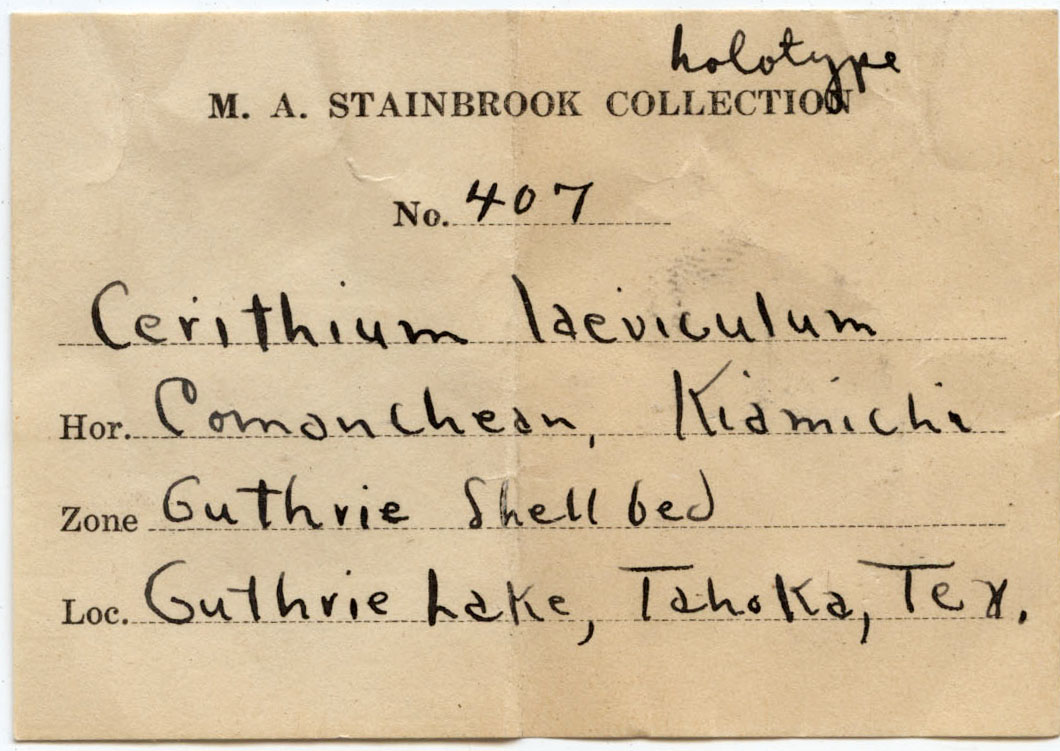 holotype
M. A. STAINBROOK COLLECTION
No. 407
Cerithium laeviculum
Hor. Comanchean, Kiamichi
Zone Guthrie Shell bed
Loc. Guthrie Lake, Tahoka, Tex.